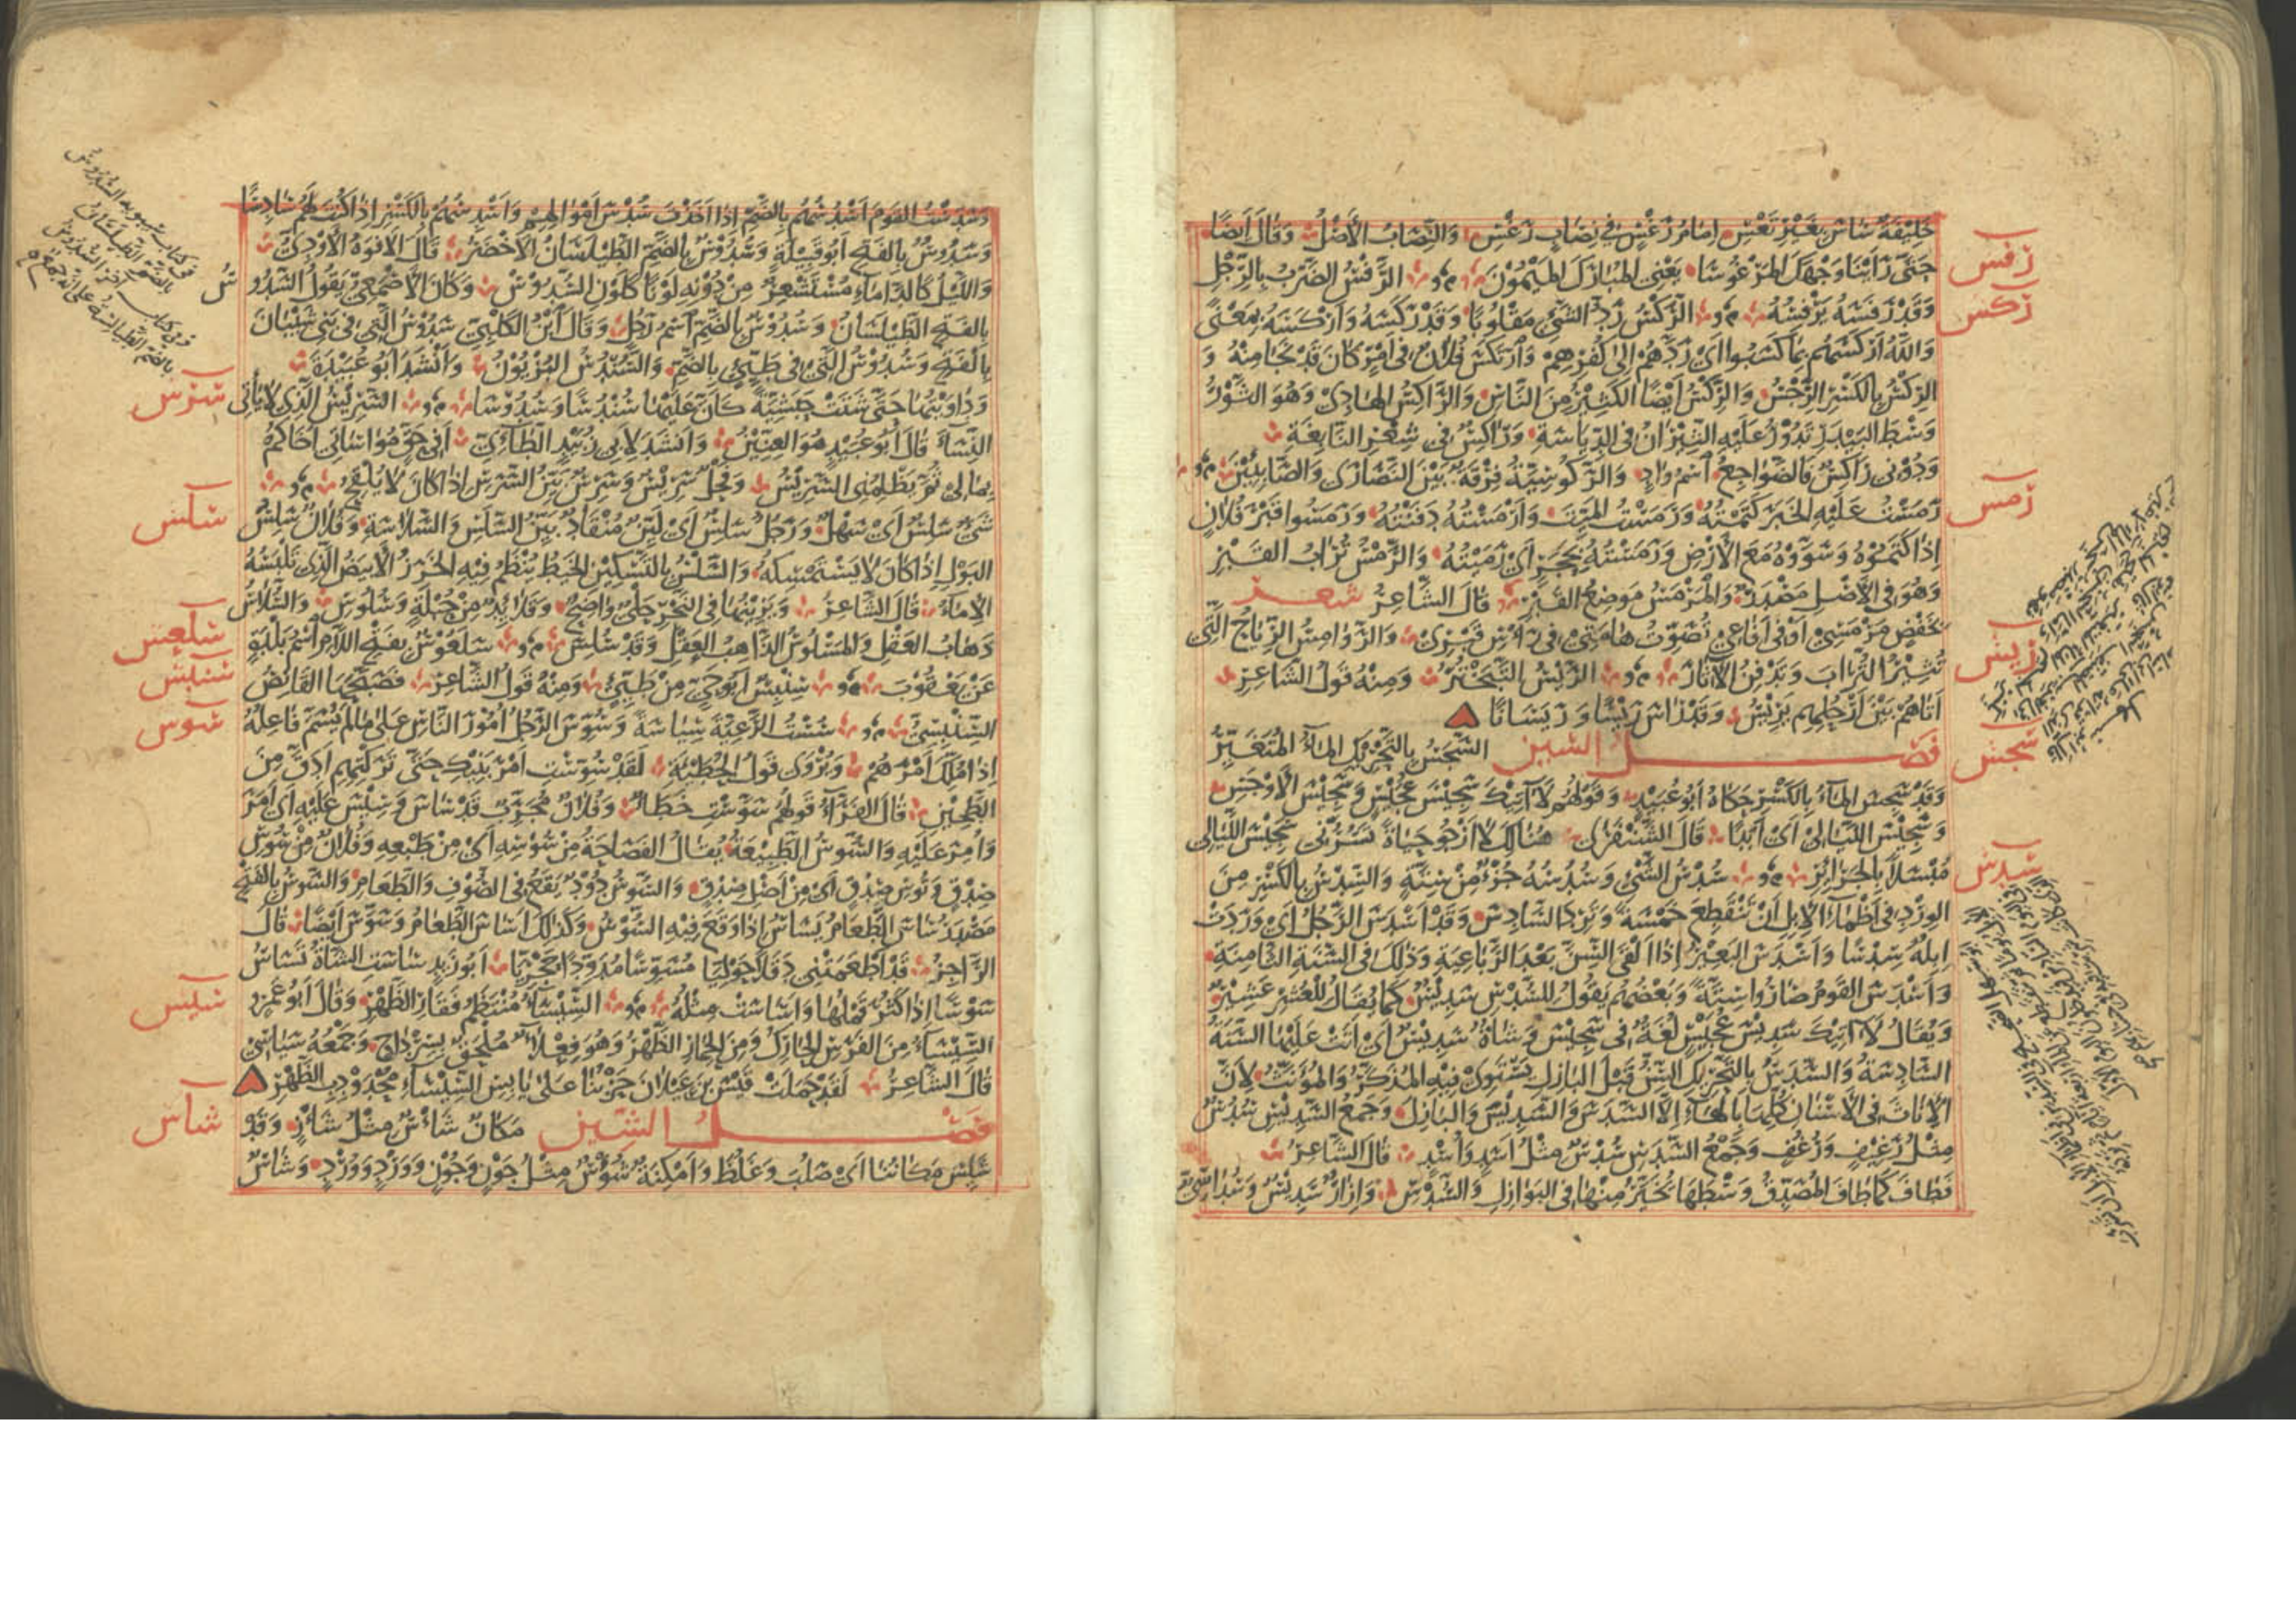 خليفة ساس بغير تعس امام رغس في نصاب رغس والنصاب الاصل وقال ايضا
حتى راينا وجهك المرغوسا يعني المبارك الميمون الرفس الضرب بالرجل
رفس
وقد رفسه يرفسه الركس رد الشيء مقلوبا وقد ركسه واركسه بمعنى
ركس
والله اركسهم بما كسبوا اي ردهم الى كفرهم وارتكس فلان في امر كان قد نجا منه و
الركس بالكسر الرجس والركس ايضا الكثير من الناس والراكس الهادي وهو الثور
وسط البيدر تدور عليه الثيران في الدياسة وراكس في شعر النابغة
ودوني راكس فالضواجع اسم واد والركوسية فرقة بين النصارى والصابيين
رمس
رمست عليه الخبر كتمته ورمست الميت وارمسته دفنته ورمسوا قبر فلان
اذا كتموه وسووه مع الارض ورمسته بحجر اي رميته والرمس تراب القبر
وهو في الاصل مصدر والمرمس موضع القبر قال الشاعر شعر
بخفض مرمسي او في يفاع تصوت هامتي في راس قبري والروامس الرياح التي
تثير التراب وتدفن الاثار الريس التبختر ومنه قول الشاعر
ريس
اتاهم بين ارحلهم يريس وقد راس ريسا وريسانا
فصل السين السجس بالتحريك الماء المتغير
سجس
وقد سجس الماء بالكسر حكاه ابو عبيد وقولهم لا اتيك سجيس عجيس وسجيس الاوجس
وسجيس الليالي اي ابدا قال الشنفرى هنالك لا ارجو حياة تسرني سجيس الليالي
مبسلا بالجرائر سدس الشيء وسدسه جزء من ستة والسدس بالكسر من
سدس
الورد في اظماء الابل ان تنقطع خمسة وترد السادس وقد اسدس الرجل اي وردت
ابله سدسا واسدس البعير اذا القى السن بعد الرباعية وذلك في السنة الثامنة
واسدس القوم صاروا ستة وبعضهم يقول للسدس سديس كما يقال للعشر عشير
ويقال لا اتيك سديس عجيس لغة في سجيس وشاة سديس اي اتت عليها السنة
السادسة والسدس بالتحريك السن قبل البازل يستوي فيه المذكر والمؤنث لان
الاناث في الاسنان كلها بالهاء الا السدس والسديس والبازل وجمع السديس سدس
مثل رغيف ورغف وجمع السدس سدس مثل اسد واسد قال الشاعر
فطاف كما طاف المصدق وسطها يخير منها في البوازل والسدس وازار سديس وسداسي
وسدست القوم اسدسهم بالضم اذا اخذت سدس اموالهم واسدسهم بالكسر اذا كنت لهم سادسا
وسدوس بالفتح ابو قبيلة وسدوس بالضم الطيلسان الاخضر قال الافوه الاودي
والليل كالداماء مستشعر من دونه لونا كلون السدوس وكان الاصمعي يقول السدوس
بالفتح الطيلسان وسدوس بالضم اسم رجل وقال ابن الكلبي سدوس التي في بني شيبان
بالفتح وسدوس التي في طيئ بالضم والسندس البزيون وانشد ابو عبيدة
وداويتها حتى شتت حبشية كان عليها سندسا وسدوسا السريس الذي لا ياتي
سرس
النساء قال ابو عبيد هو العنين وانشد لابي زبيد الطائي افي حق مواساتي اخاكم
بمالي ثم يظلمني السريس وفحل سريس وسرس بين السرس اذا كان لا يلقح
شيء سلس اي سهل ورجل سلس اي لين منقاد بين السلس والسلاسة وفلان سلس
سلس
البول اذا كان لا يستمسكه والسلس بالتسكين الخيط ينظم فيه الخرز الابيض الذي تلبسه
الاماء قال الشاعر ويزينها في النحر حلي واضح وقلائد من حبلة وسلوس والسلاس
ذهاب العقل والمسلوس الذاهب العقل وقد سلس سلعوس بفتح اللام اسم بلدة
سلعس
عن يعقوب سنبس ابو حي من طيئ ومنه قول الشاعر فصبحها القانص
سنبس
السنبسي سست الرعية سياسة وسوس الرجل امور الناس على ما لم يسم فاعله
سوس
اذا ملك امرهم ويروى قول الحطيئة لقد سوست امر بنيك حتى تركتهم ادق من
الطحين قال الفراء قولهم سوست خطا وفلان مجرب قد ساس وسيس عليه اي امر
وامر عليه والسوس الطبيعة يقال الفصاحة من سوسه اي من طبعه وفلان من سوس
صدق وتوس صدق اي من اصل صدق والسوس دود يقع في الصوف والطعام والسوس بالفتح
مصدر ساس الطعام يساس اذا وقع فيه السوس وكذلك اساس الطعام وسوس ايضا قال
الراجز قد اطعمتني دقلا حوليا مسوسا مدودا حجريا ابو زيد ساست الشاة تساس
سوسا اذا كثر قملها واساست مثله السيساء منتظم فقار الظهر وقال ابو عمرو
سيس
السيساء من الفرس الحارك ومن الحمار الظهر وهو فعلاء ملحق بسرداح وجمعه سياسي
قال الشاعر لقد حملت قيس بن عيلان حربنا على يابس السيساء محدودب الظهر
فصل الشين مكان شاس مثل شاز وقد
شاس
شئس مكاننا اي صلب وغلظ وامكنة شؤس مثل جون وجون وورد وورد وشاس